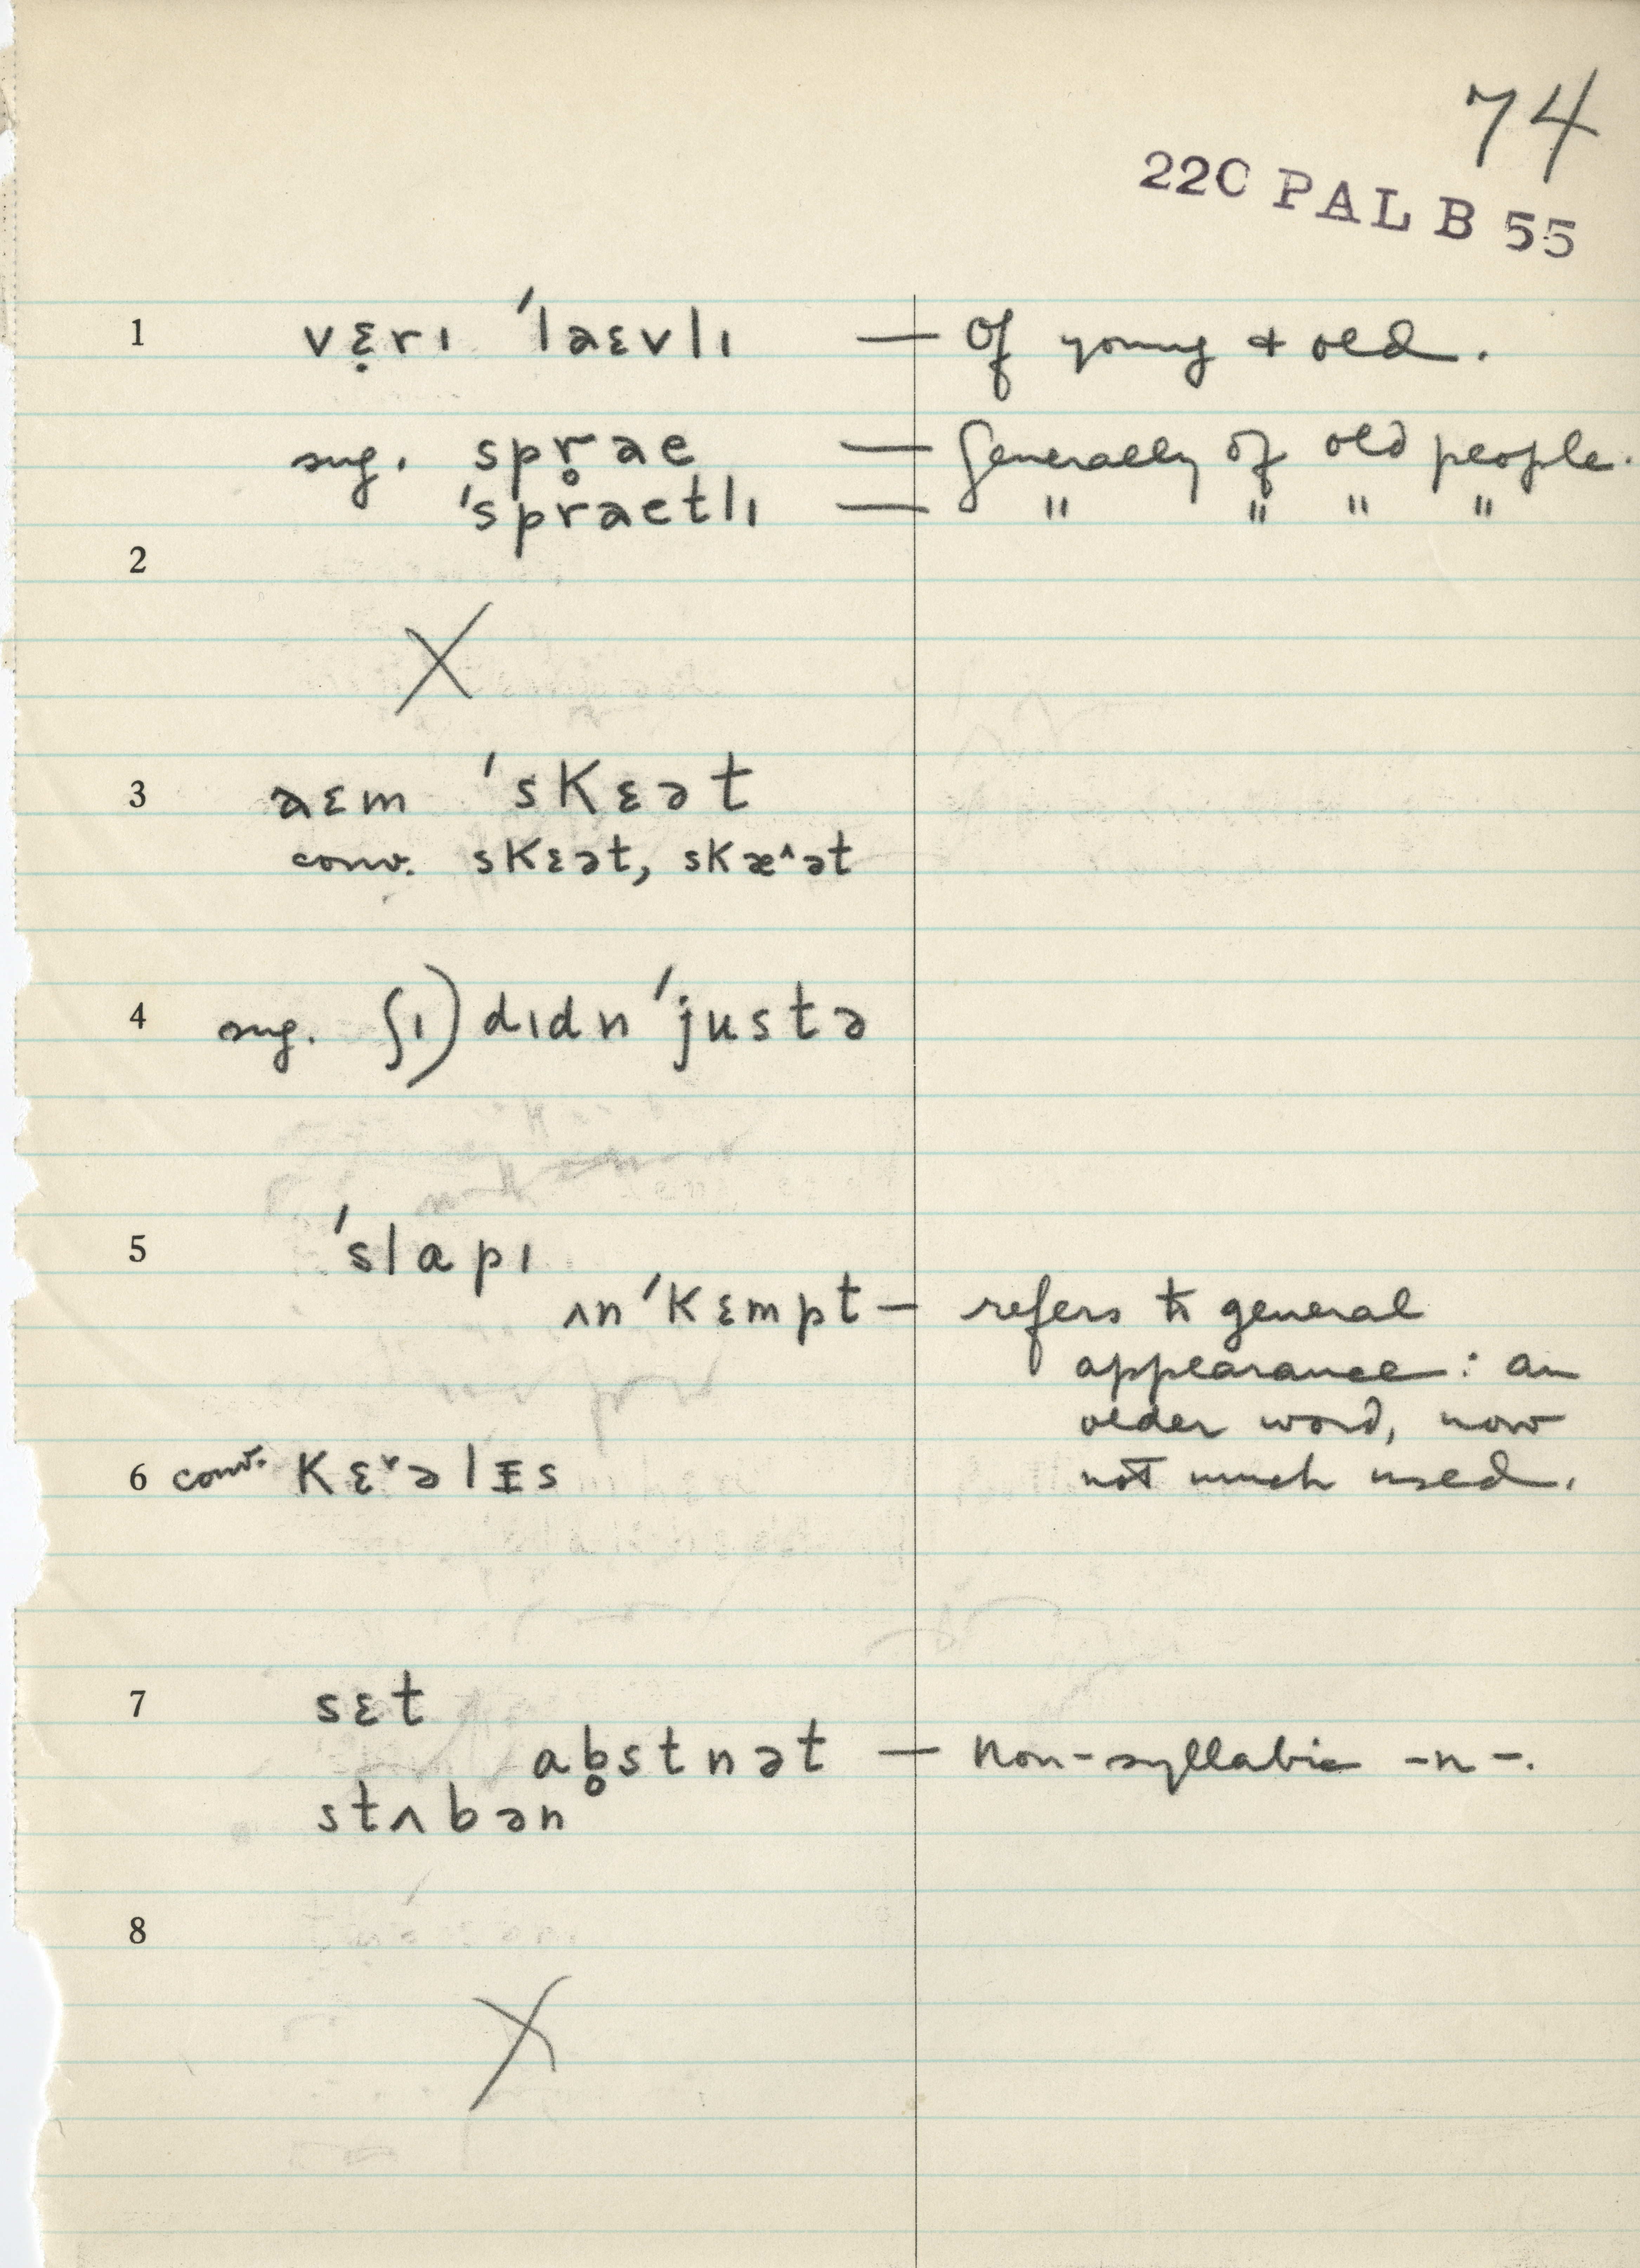 74
22C PAL B 55
1 vɛ̣rı ˈlaɛvlı — Of young + old.
sug. spr̥ae — Generally of old people.
ˈspraetlı — " " " "
2
X
3 aɛm ˈskɛət
conv. skɛət, skæ^ət
4 sug. (ʃı) dıdn ˈjustə
5 ˈslapı
ʌnˈkɛmpt — refers to general
appearance: an
older word, now
not much used.
6 conv. kɛ˅əlɪs
7 sɛt
ab̥stnət — Non-syllabic -n-.
stʌbən
8
X